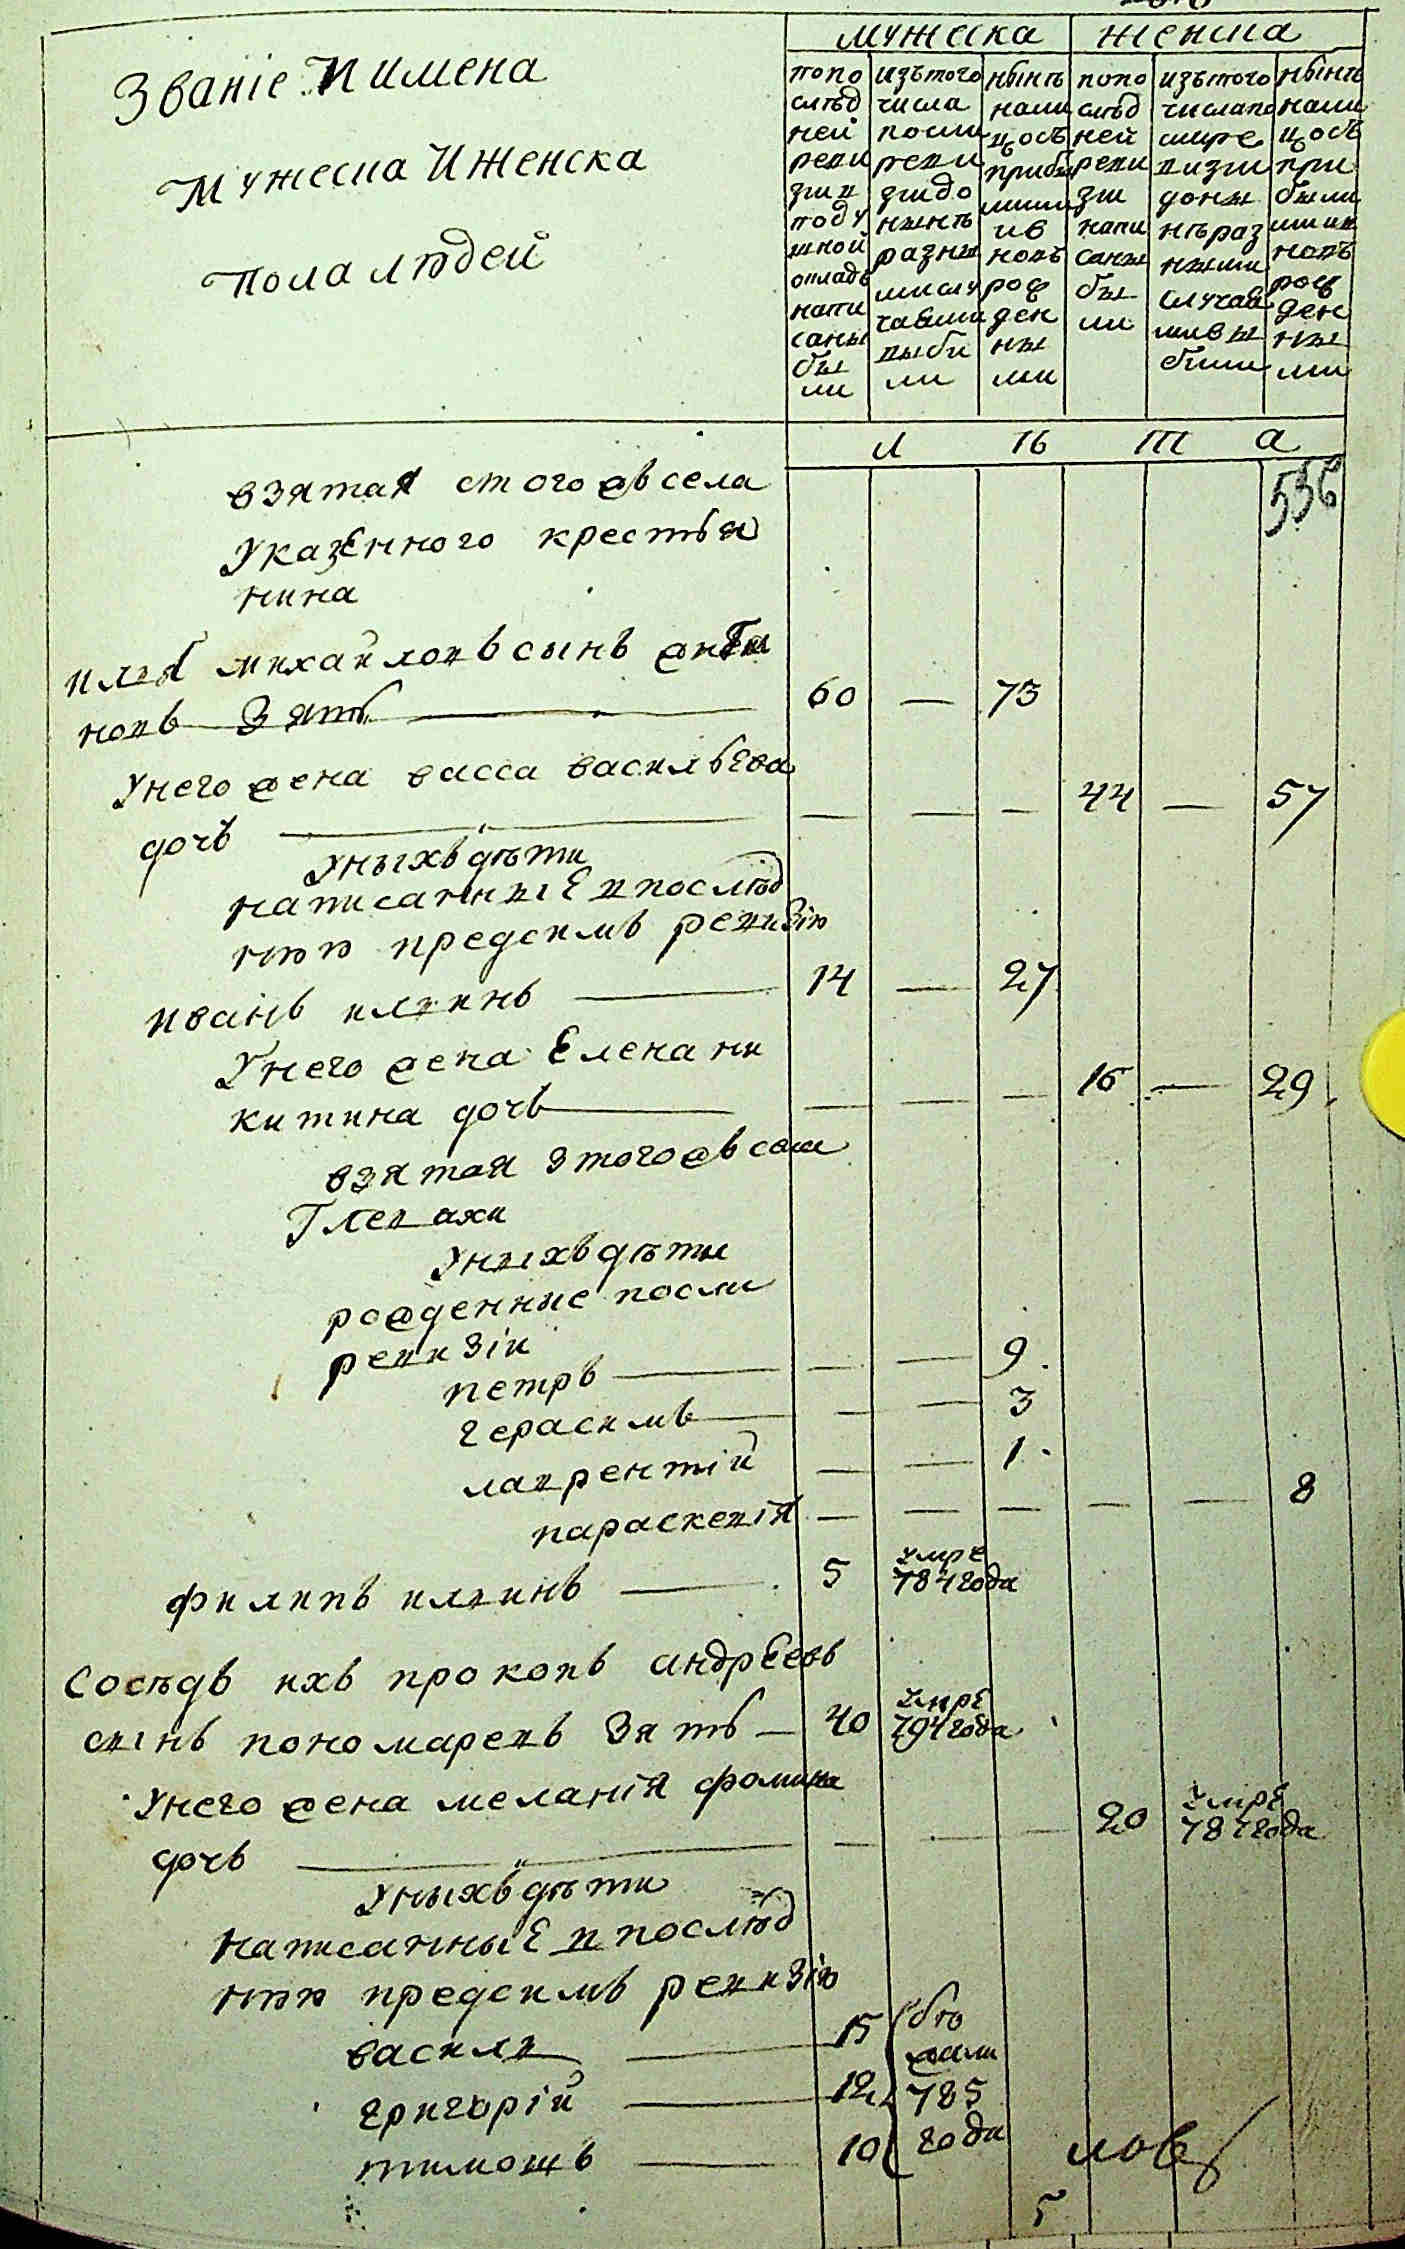 мужеска женска
Званіе И имена
Мужеска И Женска
Пола людей
по по
слѣд
ней
реви
зіи в
поду
шной
окладъ
напи
саны
бы
ли
изъ того
числа
посли
реви
зіи до
нынѣ
разны
ми слу
чаеми
выби
ли
нынѣ
нали
цосъ
прибы
лими
ив
новъ
рож
ден
ны
ми
по по
слѣд
ней
реви
зіи
напи
саны
бы
ли
изъ того
числа по
сли ре
визіи
доны
нѣ раз
ными
случаи
ми вы
били
нынѣ
нали
цосъ
при
были
ми и в
новъ
рож
ден
ны
ми
л ѣ т а
536
взятая стогожъ села
Указенного крестья
нина
илья михайловъ сынъ
новъ зять 60 — 73
Унего жена васса васильева
дочь — — — 44 — 57
Уныхъ дѣти
написанныЕ в послѣд
нюю предсимъ ревизію
иванъ ильинъ 14 — 27
Унего жена Елена ни
китина дочь — — — 16 — 29
взятая зтогожъ села
Глевахи
Уныхъ дѣти
рожденные посли
ревизіи
петръ — — 9
герасимъ — — 3
лаврентій — — 1
параскевія — — — — — 8
филипъ ильинъ 5 умре 784 года
Сосѣдъ ихъ прокопъ андрЕевъ
сынъ пономаревъ Зять — 40 умрЕ 794 года
Унего жена меланія фомина
дочь — — — 20 умрЕ 787 года
Уныхъ дѣти
написанныЕ в послѣд
нюю предсимъ ревизію
василь 15 бѣ
григорій 12 жали 785
тимошъ 10 года